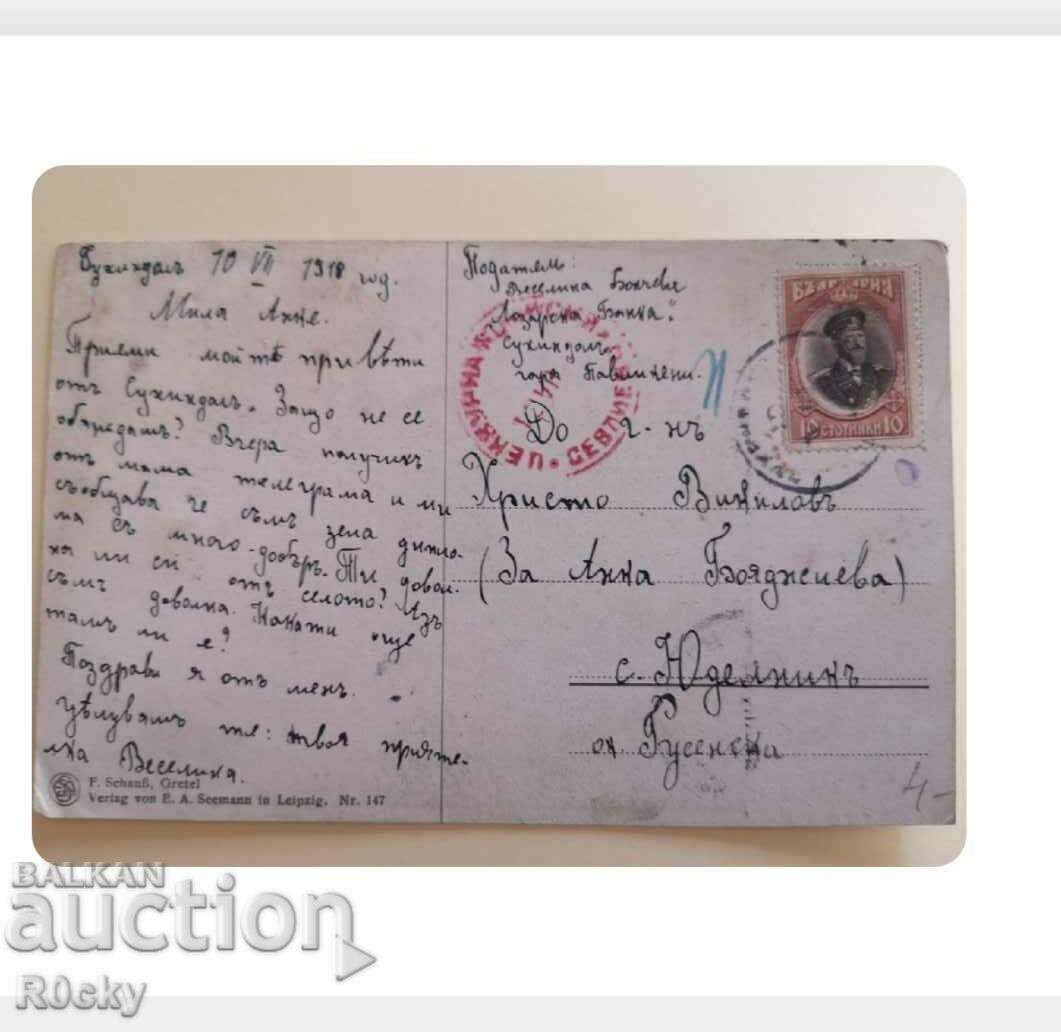 Сухиндолъ 10 VII 1918 год.
Мила Анче.
Приеми мойтѣ привѣти
отъ Сухиндолъ. Защо не се
обаждашъ? Вчера получихъ
отъ мама телеграма и ми
съобщава че съмъ зела дипло-
ма съ много-добъръ. Ти довол-
на ли си отъ селото? Азъ
съмъ доволна. още
тамъ ли е?
Поздрави я отъ менъ.
Цѣлувамъ те: твоя прияте-
лка Веселина.
F. Schauß, Gretel
Verlag von E. A. Seemann in Leipzig. Nr. 147
Подателъ:
Веселина Бончева
Лозарска Банка."
Сухиндолъ.
гора Павликени.
До г-нъ
Христо
(За Анна Бояджиева)
с. Юделникъ
ок Русенска
БЪЛГАРИЯ
10 СТОТИНКИ 10
СЕВЛИЕВО
4-
BALKAN
auction
R0cky